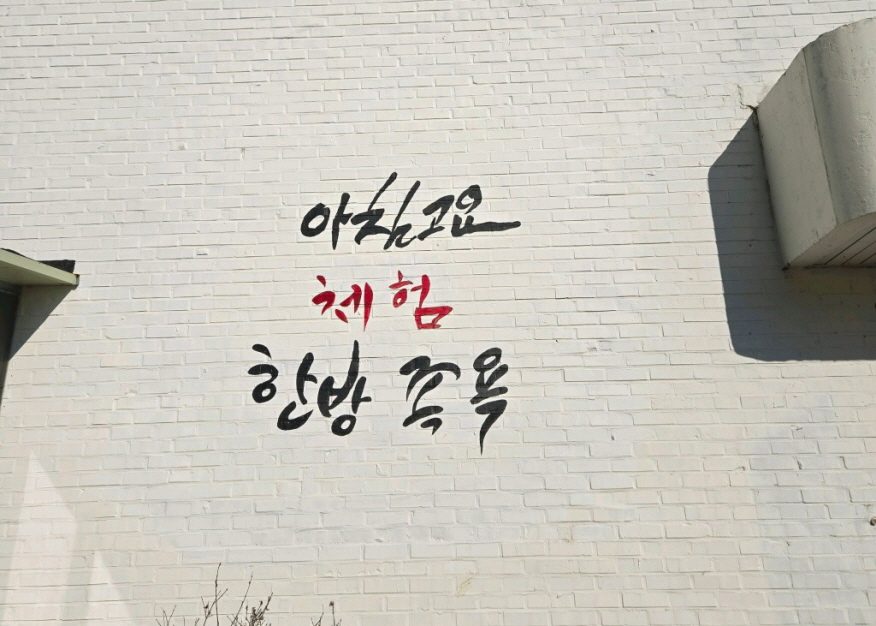 아침고요
체험
한방 족욕